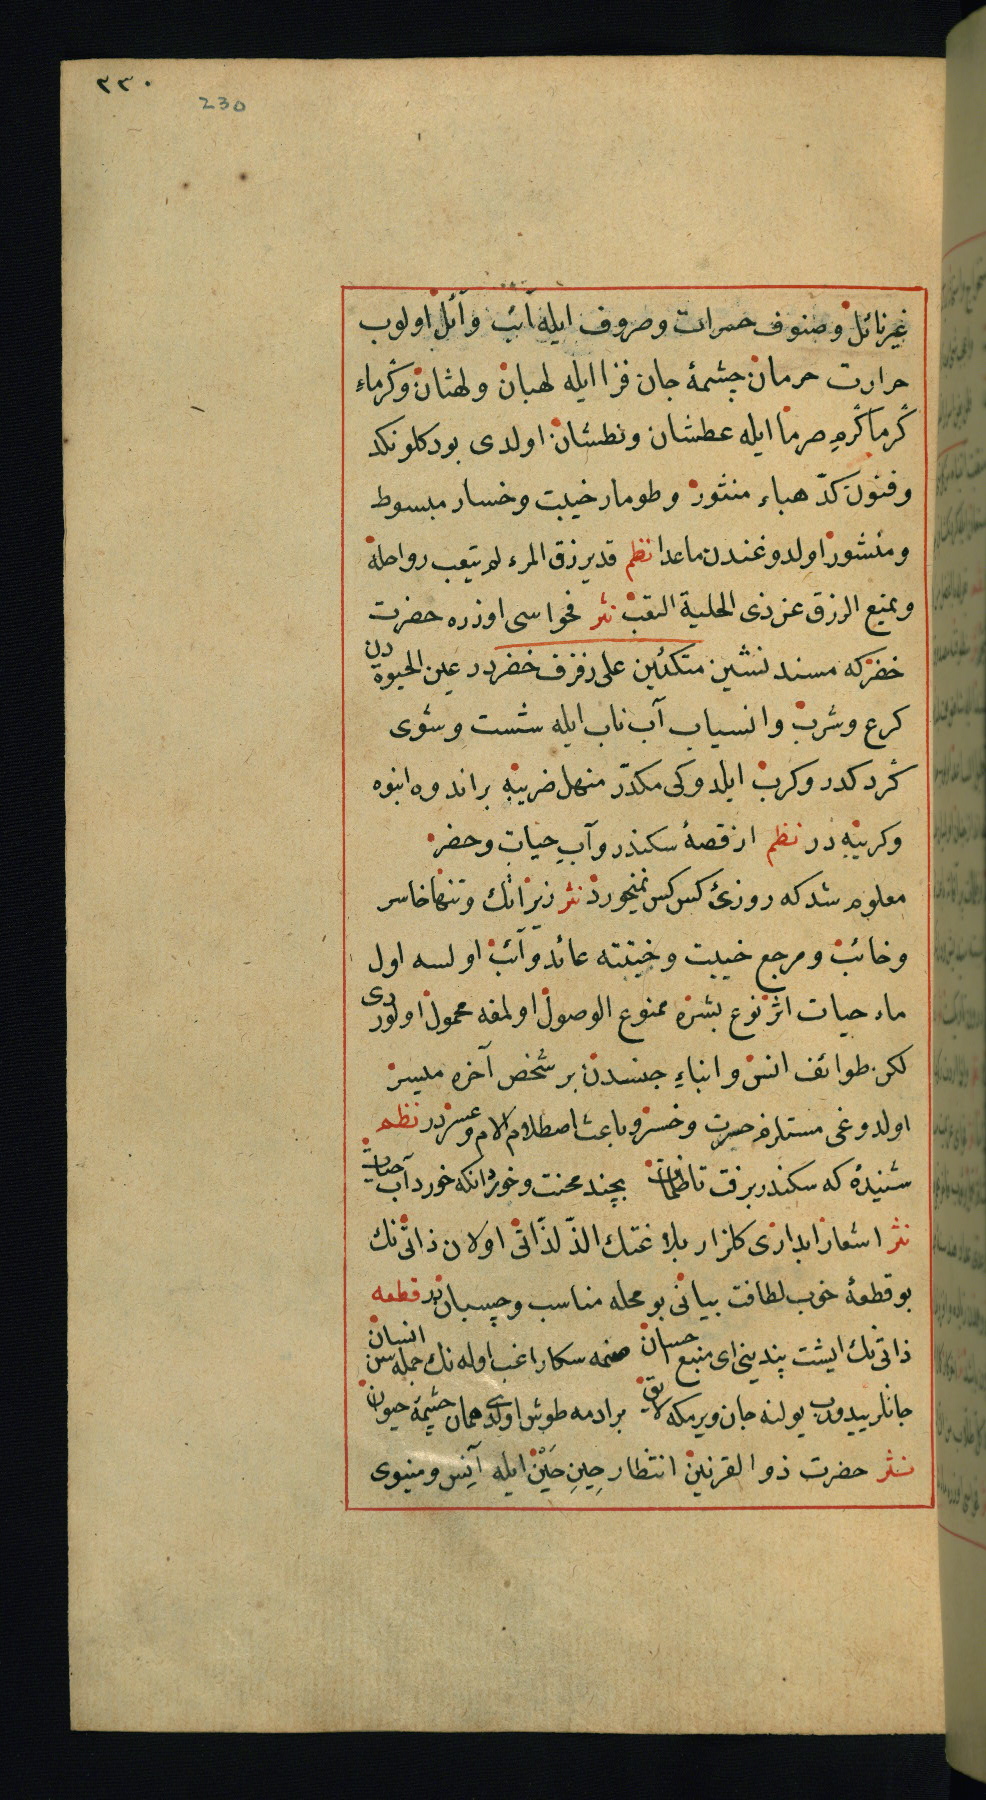 ٢٣٠
230
غیر نائل و صنوف حسرات و صروف ایله آئب و آئل اولوب
حرارت حرمان چشمهٔ جان فزا ایله لهبان و لهثان و گرماء
گرماگرم صرما ایله عطشان و نطشان اولدی بودكلونكد
و فنون كدّ هباء منثور و طومار خیبت و خسار مبسوط
و منشور اولدوغندن ماعدا نظم قد یرزق المرء لم یتعب رواحله
و یمنع الرزق عن ذی الحلیة التعب نثر فحواسی اوزره حضرت
خضر كه مسند نشین متكئین علی رفرف خضردر عین الحیوة دن
كرع و شرب و انسیاب آب ناب ایله شست و شوی
گرد كدر و كرب ایلدوكی مكدّر منهل ضریبهٔ براندوه انبوه
و كریبه در نظم از قصهٔ سكندر و آب حیات و خضر
معلوم شد كه روزئ كس كس نمیخورد نثر زیرا تك و تنها خاسر
و خائب و مرجع خیبت و خیبته عائد و آئب اولسه اول
ماء حیات اثر نوع بشره ممنوع الوصول اولمغه محمول اولوردی
لكن طوائف انس و ابناءِ جنسدن بر شخص آخره میسر
اولدوغی مستلزم حیرت و خسر و باعث اصطلام آلام و عسردر نظم
شنیدهٔ كه سكندر برفت تا ظلمات بچند محنت و خورد آنكه خورد آب حیات
نثر اشعار ابداری گلزار بلاغتك الذّ لذّاتی اولان ذاتی نك
بو قطعهٔ خوب لطافت بیانی بو محله مناسب و چسبان در قطعه
ذاتی نك ایشت پندینی ای منبع حسان صنمه سكا راغب اوله نك جمله سن انسان
جانلر بیدوب یولنه جان ویرمكه لایق برادمه طوش اولدی همان چشمهٔ حیوان
نثر حضرت ذو القرنین انتظار حِینِ حَیْن ایله آیس و مینوی